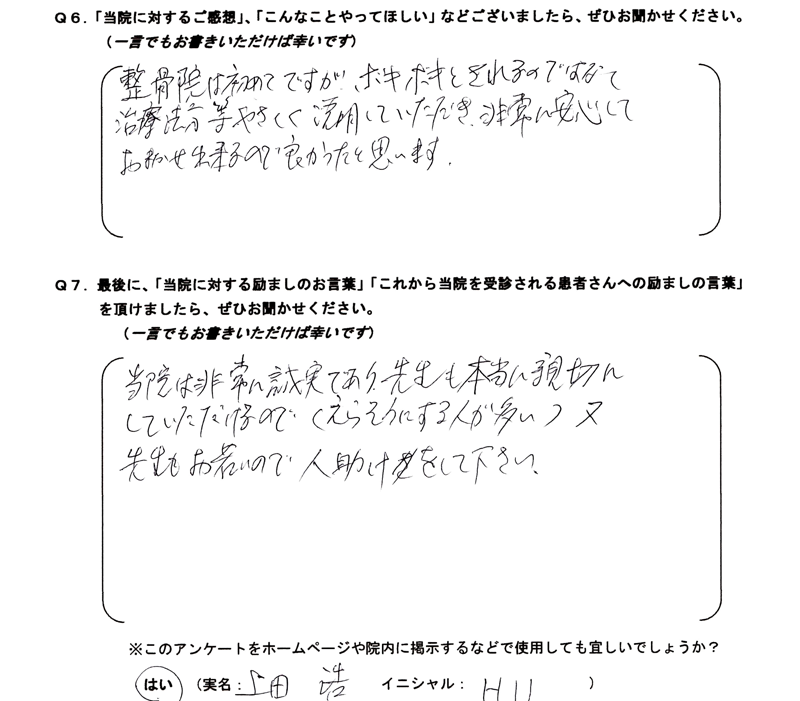 Q6.「当院に対するご感想」、「こんなことやってほしい」などございましたら、ぜひお聞かせください。
（一言でもお書きいただけば幸いです）
整骨院は初めてですが、ボキボキとされるのではなくて
治療法等やさしく説明していただき、非常に安心して
おまかせ出来るので良かったと思います.
Q7. 最後に、「当院に対する励ましのお言葉」「これから当院を受診される患者さんへの励ましの言葉」
を頂けましたら、ぜひお聞かせください。
（一言でもお書きいただけば幸いです）
当院は非常に誠実であり、先生も本当に親切に
していただけるので（えらそうにする人が多い）又
先生もお若いので人助けをして下さい.
※このアンケートをホームページや院内に掲示するなどで使用しても宜しいでしょうか？
はい （実名：上田 浩 イニシャル： HU ）